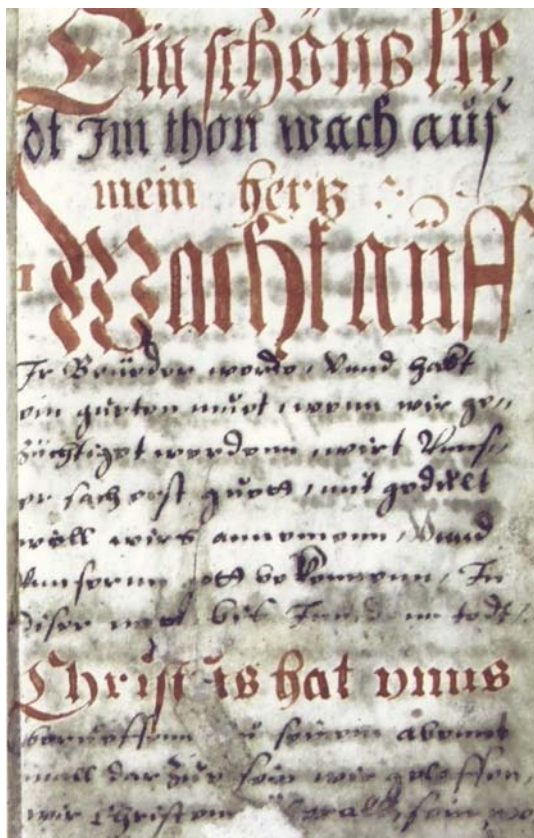 Ein schöns lie,
dt Im thon wach aüf
mein hertz
Wacht aüff
Ir Brüeder werde, Vnnd habt
ein güeten müet, wenn wir ge,,
züchtiget werdenn, wirt Vnns,
er sach erst güett, mit gedült
wöll wirs annemenn, Vnnd
Vnnserm gott bekennenn, In
diser welt bis Inn denn todt,
Christus hat vnns
berüeffenn zü seinem abennt
mall dar züe sein wir geloffen,
wir Christenn sein